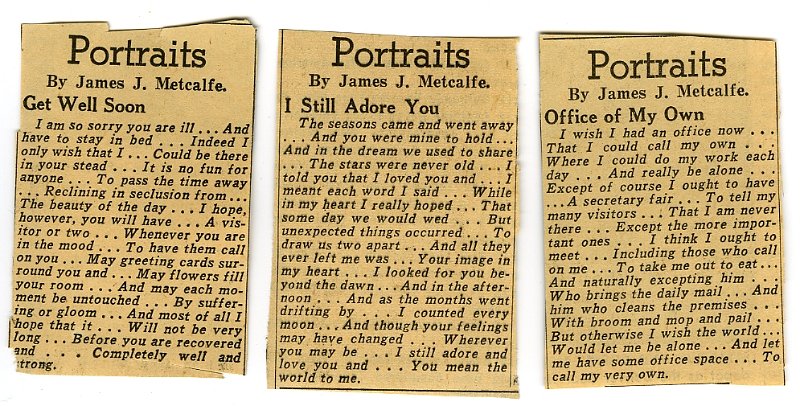 Portraits
By James J. Metcalfe.
Get Well Soon
I am so sorry you are ill . . . And
have to stay in bed . . . Indeed I
only wish that I . . . Could be there
in your stead . . . It is no fun for
anyone . . . To pass the time away
. . . Reclining in seclusion from . . .
The beauty of the day . . . I hope,
however, you will have . . . A vis-
itor or two . . . Whenever you are
in the mood . . . To have them call
on you . . . May greeting cards sur-
round you and . . . May flowers fill
your room . . . And may each mo-
ment be untouched . . . By suffer-
ing or gloom . . . And most of all I
hope that it . . . Will not be very
long . . . Before you are recovered
and . . . . Completely well and
strong.
Portraits
By James J. Metcalfe.
I Still Adore You
The seasons came and went away
. . . And you were mine to hold . . .
And in the dream we used to share
. . . The stars were never old . . . I
told you that I loved you and . . . I
meant each word I said . . . While
in my heart I really hoped . . . That
some day we would wed . . . But
unexpected things occurred . . . To
draw us two apart . . . And all they
ever left me was . . . Your image in
my heart . . . I looked for you be-
yond the dawn . . . And in the after-
noon . . . And as the months went
drifting by . . . I counted every
moon . . . And though your feelings
may have changed . . . Wherever
you may be . . . I still adore and
love you and . . . You mean the
world to me.
Portraits
By James J. Metcalfe.
Office of My Own
I wish I had an office now . . .
That I could call my own . . .
Where I could do my work each
day . . . And really be alone . . .
Except of course I ought to have
. . . A secretary fair . . . To tell my
many visitors . . . That I am never
there . . . Except the more impor-
tant ones . . . I think I ought to
meet . . . Including those who call
on me . . . To take me out to eat . . .
And naturally excepting him . . .
Who brings the daily mail . . . And
him who cleans the premises . . .
With broom and mop and pail . . .
But otherwise I wish the world . . .
Would let me be alone . . . And let
me have some office space . . . To
call my very own.